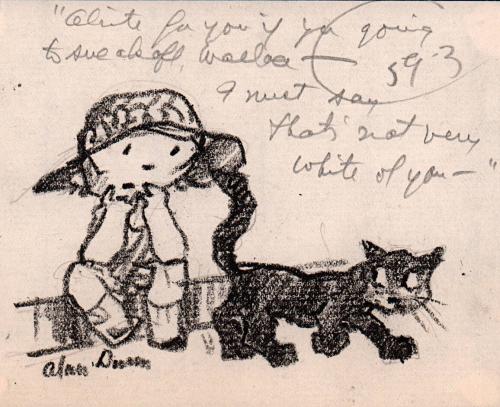 "Alrite for you if ya going
to sneak off, wallee —
593
I must say
that's not very
white of you — "
Alan Dunn